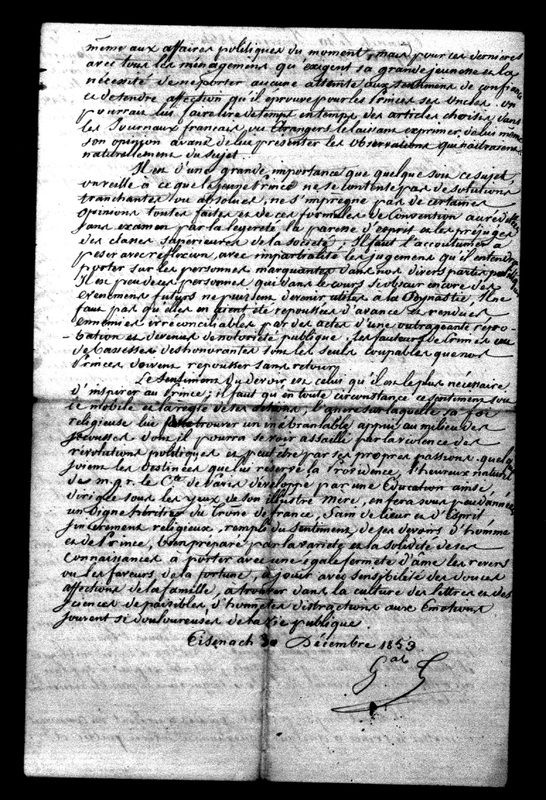 même aux affaires politiques du moment, mais pour ces dernières
avec tous les ménagemens qu'exigent sa grande jeunesse et la
nécessité de ne porter aucune atteinte aux sentimens de confiance
et de tendre affection qu'il éprouve pour les Princes ses Oncles. on
pourrait lui faire lire de temps en temps des articles choisis dans
les Journaux français, ou Etrangers le laissant exprimer de lui même
son opinion avant de lui présenter les observations qui naîtraient
naturellement du sujet.
Il est d'une grande importance que quelque soit ce sujet
on veille à ce que le jeune Prince ne se contente pas de solutions
tranchantes ou absolues, ne s'imprègne pas de certaines
opinions toutes faites et de ces formules de convention
sans examen par la légereté, la paresse d'esprit et les préjugés
des classes supérieures de la société; Il faut l'accoutumer à
peser avec réflexion, avec impartialité les jugemens qu'il entend
porter sur les personnes marquantes dans nos divers partis politiques
Il est peu de ces personnes qui dans le cours si obscur encore des
évènemens futurs ne puissent devenir utiles à la Dynastie, Il ne
faut pas qu'elles en aient été repoussées d'avance et rendues
ennemies irréconciliables par des actes d'une outrageante répro
-bation et devenus de notoriété publique. les fauteurs de Crimes ou
de bassesses deshonorantes sont les seuls coupables que nos
Princes doivent repousser sans retour.
Le Sentiment du devoir est celui qu'il est le plus nécessaire
d'inspirer au Prince; il faut qu'en toute circonstance ce sentiment soit
le mobile et la règle de ses actions, l'ancre sur laquelle sa foi
religieuse lui fasse trouver un inébranlable appui au milieu des
secousses dont il pourra se voir assailli par la violence des
révolutions politiques et peut être par ses propres passions. quelques
soient les destinées que lui réserve la Providence, l'heureux naturel
de m.g.r. le Cte de Paris développé par une Education ainsi
dirigée sous les yeux de son illustre Mère, en fera sous peu d'années
un digne héritier du Trône de france, Sain de Coeur et d'Esprit
sincèrement religieux, rempli du sentiment de ses devoirs d'homme
et de Prince, bien préparé par la variété et la solidité de ses
connaissances à porter avec une égale fermeté d'âme les revers
ou les faveurs de la fortune, à jouir avec sensibilité des douces
affections de la famille, à trouver dans la culture des lettres et des
sciences de paisibles, d'honnêtes distractions aux Emotions
souvent si douloureuses de la vie publique.
Eisenach 30 Décembre 1853
Gal G